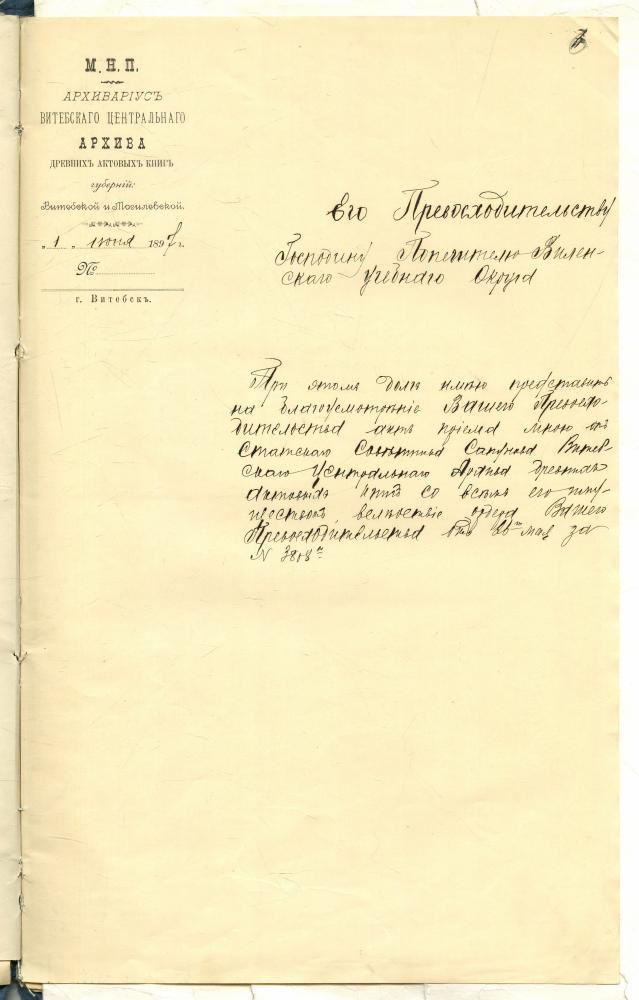 7
М. Н. П.
АРХИВАРІУСЪ
ВИТЕБСКАГО ЦЕНТРАЛЬНАГО
АРХИВА
ДРЕВНИХЪ АКТОВЫХЪ КНИГЪ
губерній:
Витебской и Могилевской.
„ 1 „ июня 1897 г.
№
г. Витебскъ.
Его Превосходительству
Господину Попечителю Вилен-
скаго учебнаго Округа
При этомъ долгъ имѣю представить
на благоусмотрѣніе Вашего Превосхо-
дительства актъ пріема мною отъ
Статскаго Совѣтника Сапунова Витеб-
скаго Центральнаго Архива древнихъ
актовыхъ книгъ со всѣмъ его иму-
ществомъ вслѣдствіе ордера Вашего
Превосходительства отъ мая за
N 3808